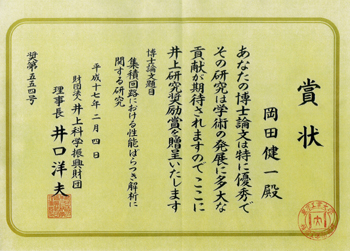 賞状
岡田健一殿
あなたの博士論文は特に優秀で
その研究は学術の発展に多大な
貢献が期待されますのでここに
井上研究奨励賞を贈呈いたします
博士論文題目
集積回路における性能ばらつき解析に
関する研究
平成十七年二月四日
財団法人井上科学振興財団
理事長井口洋夫
奨第五五四号